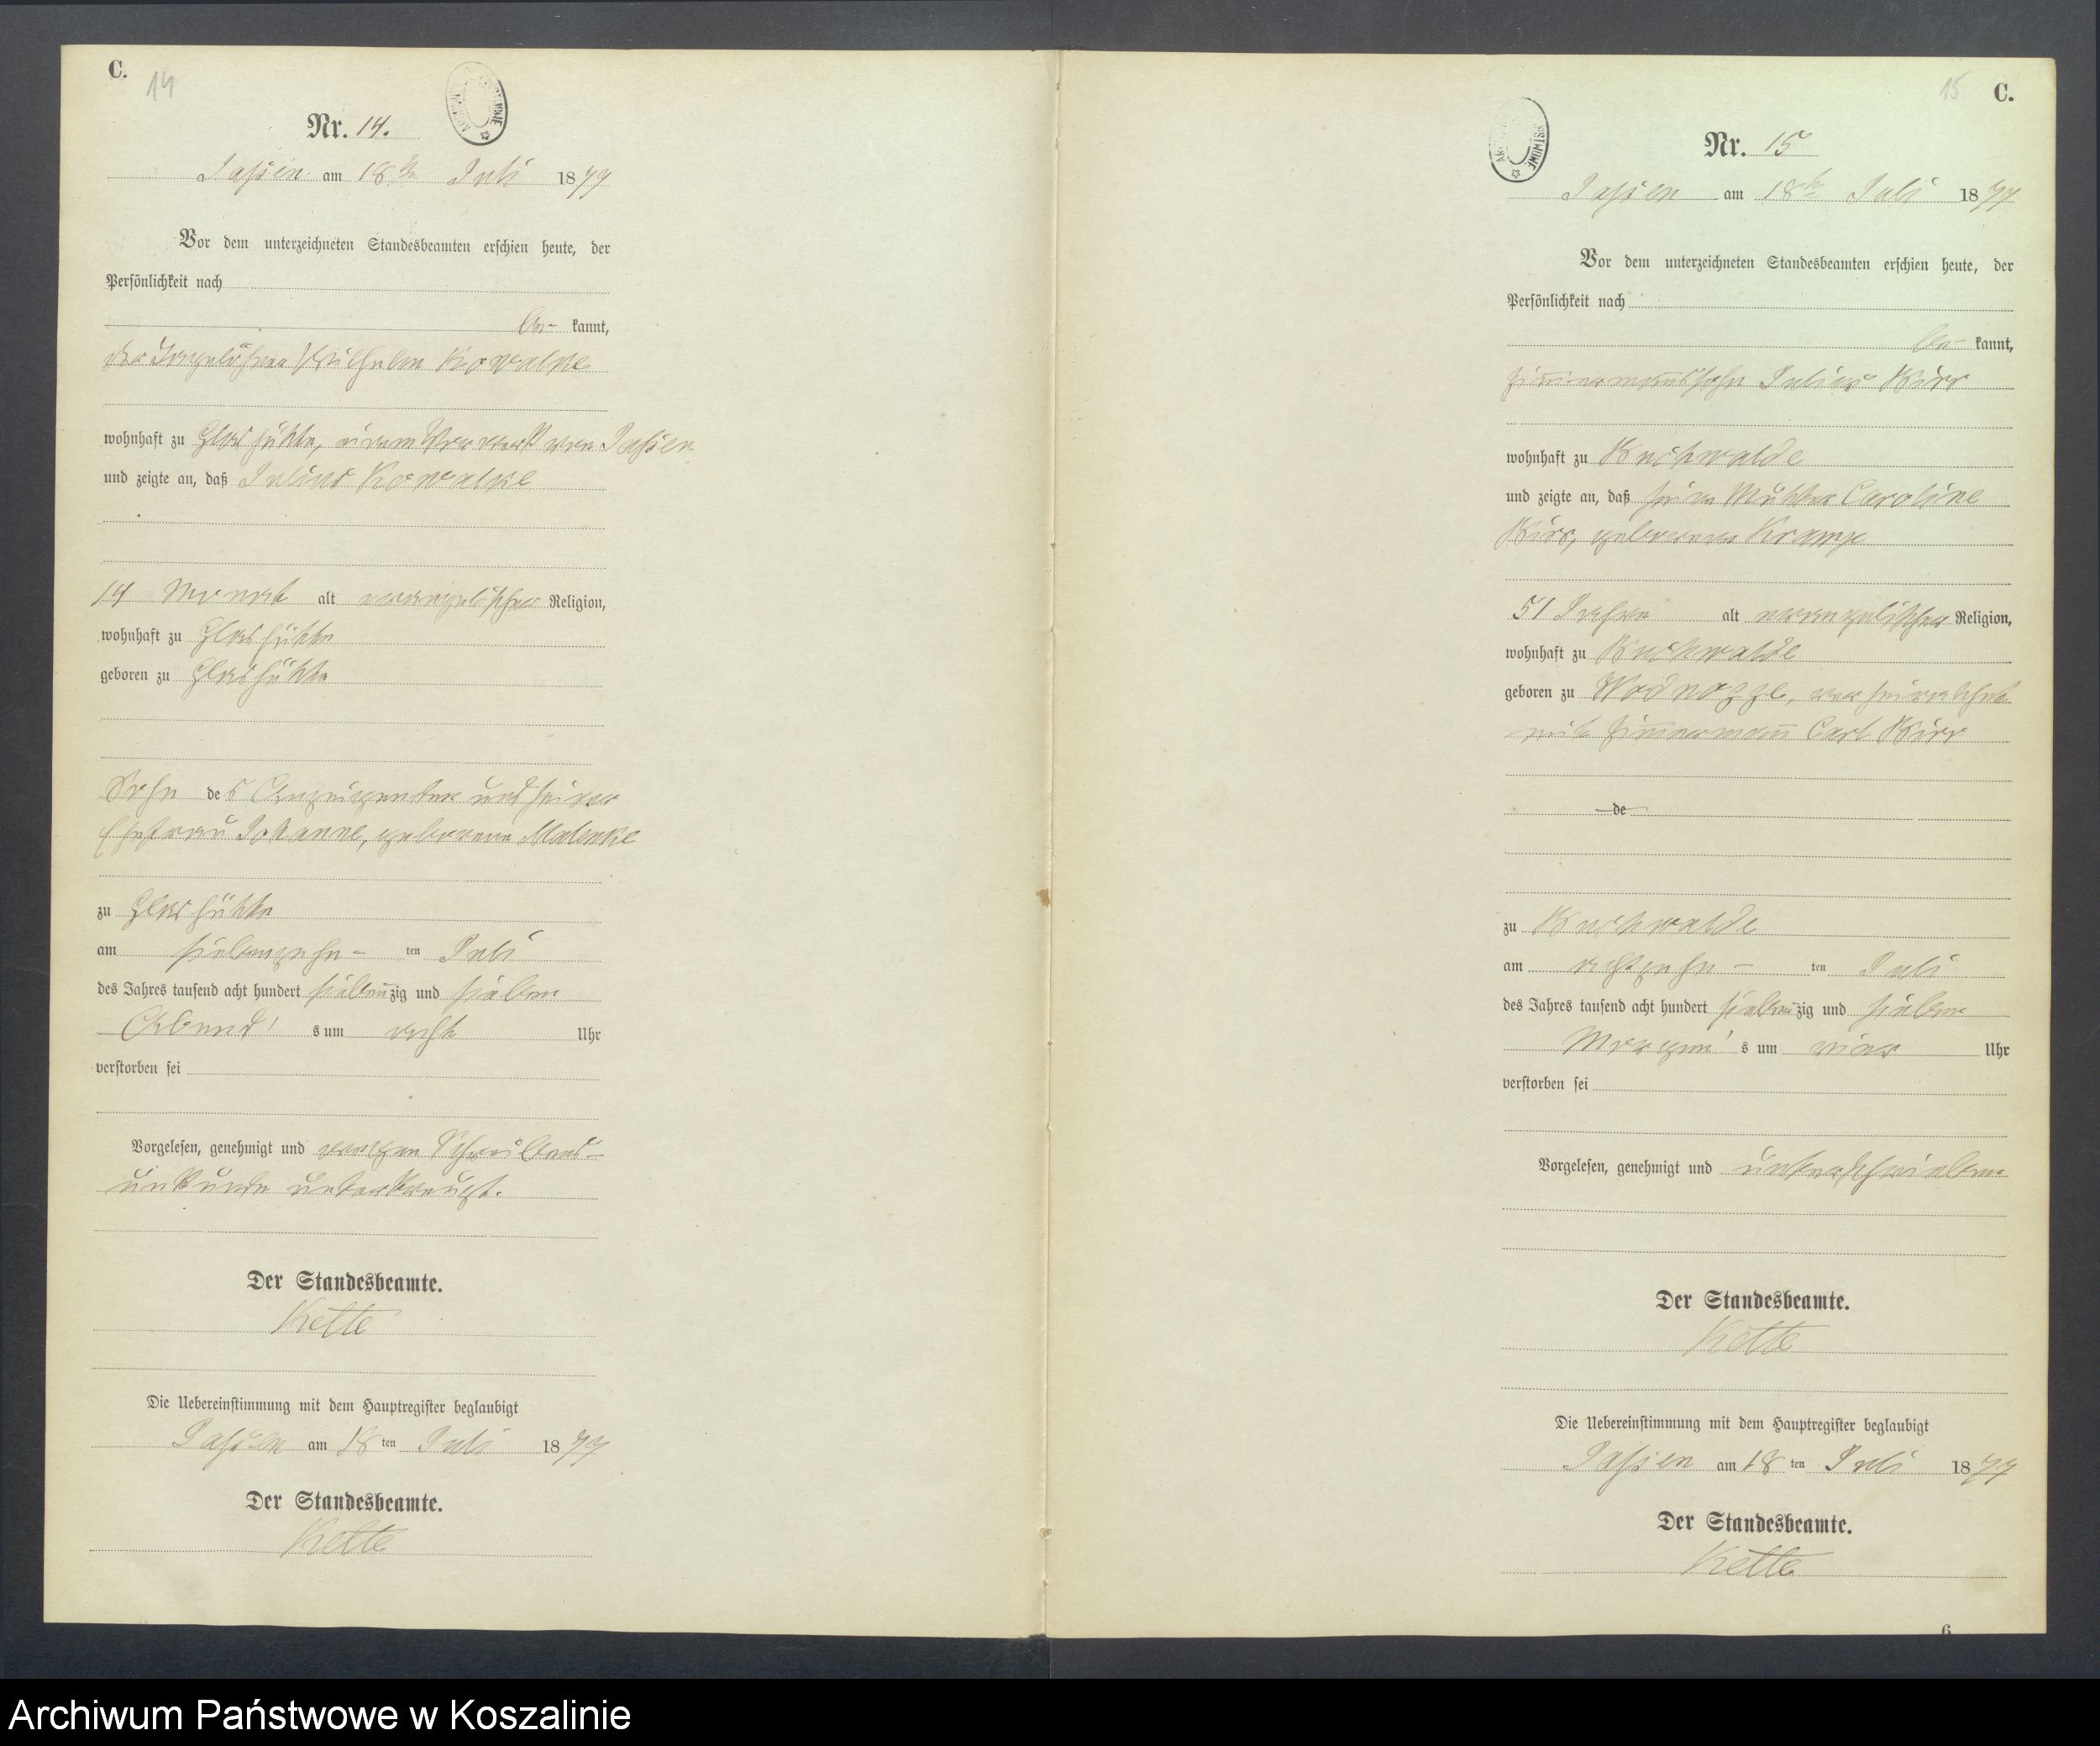 C.
14
Nr. 14.
Jassen am 18ten Juli 1877
Vor dem unterzeichneten Standesbeamten erschien heute, der
Persönlichkeit nach
be- kannt,
der Tagelöhner Wilhelm Kowalke
wohnhaft zu Glashütte, einem Vorwerk von Jassen
und zeigte an, daß Julius Kowalke
14 Monat alt evangelischer Religion,
wohnhaft zu Glashütte
geboren zu Glashütte
Sohn des Anzeigenden und seiner
Ehefrau Johanne, geborene Malenke
zu Glashütte
am siebenzehn- ten Juli
des Jahres tausend acht hundert siebenzig und sieben
Abend's um acht Uhr
verstorben sei
Vorgelesen, genehmigt und wegen Schreibens-
unkunde unterkreuzt.
Der Standesbeamte.
Kette
Die Uebereinstimmung mit dem Hauptregister beglaubigt
Jassen am 18 ten Juli 1877
Der Standesbeamte.
Kette
15
C.
Nr. 15
Jassen am 18ten Juli 1877
Vor dem unterzeichneten Standesbeamten erschien heute, der
Persönlichkeit nach
be- kannt,
Zimmermannssohn Julius
wohnhaft zu Buchwalde
und zeigte an, daß seine Mutter Caroline
geborene Kramp
51 Jahre alt evangelischer Religion,
wohnhaft zu Buchwalde
geboren zu Wodnogge, verheirathet
mit Zimmermann Carl
de
zu Buchwalde
am achtzehn- ten Juli
des Jahres tausend acht hundert siebenzig und sieben
Morgen's um vier Uhr
verstorben sei
Vorgelesen, genehmigt und unterschrieben
Der Standesbeamte.
Kette
Die Uebereinstimmung mit dem Hauptregister beglaubigt
Jassen am 18 ten Juli 1877
Der Standesbeamte.
Kette
6
Archiwum Państwowe w Koszalinie